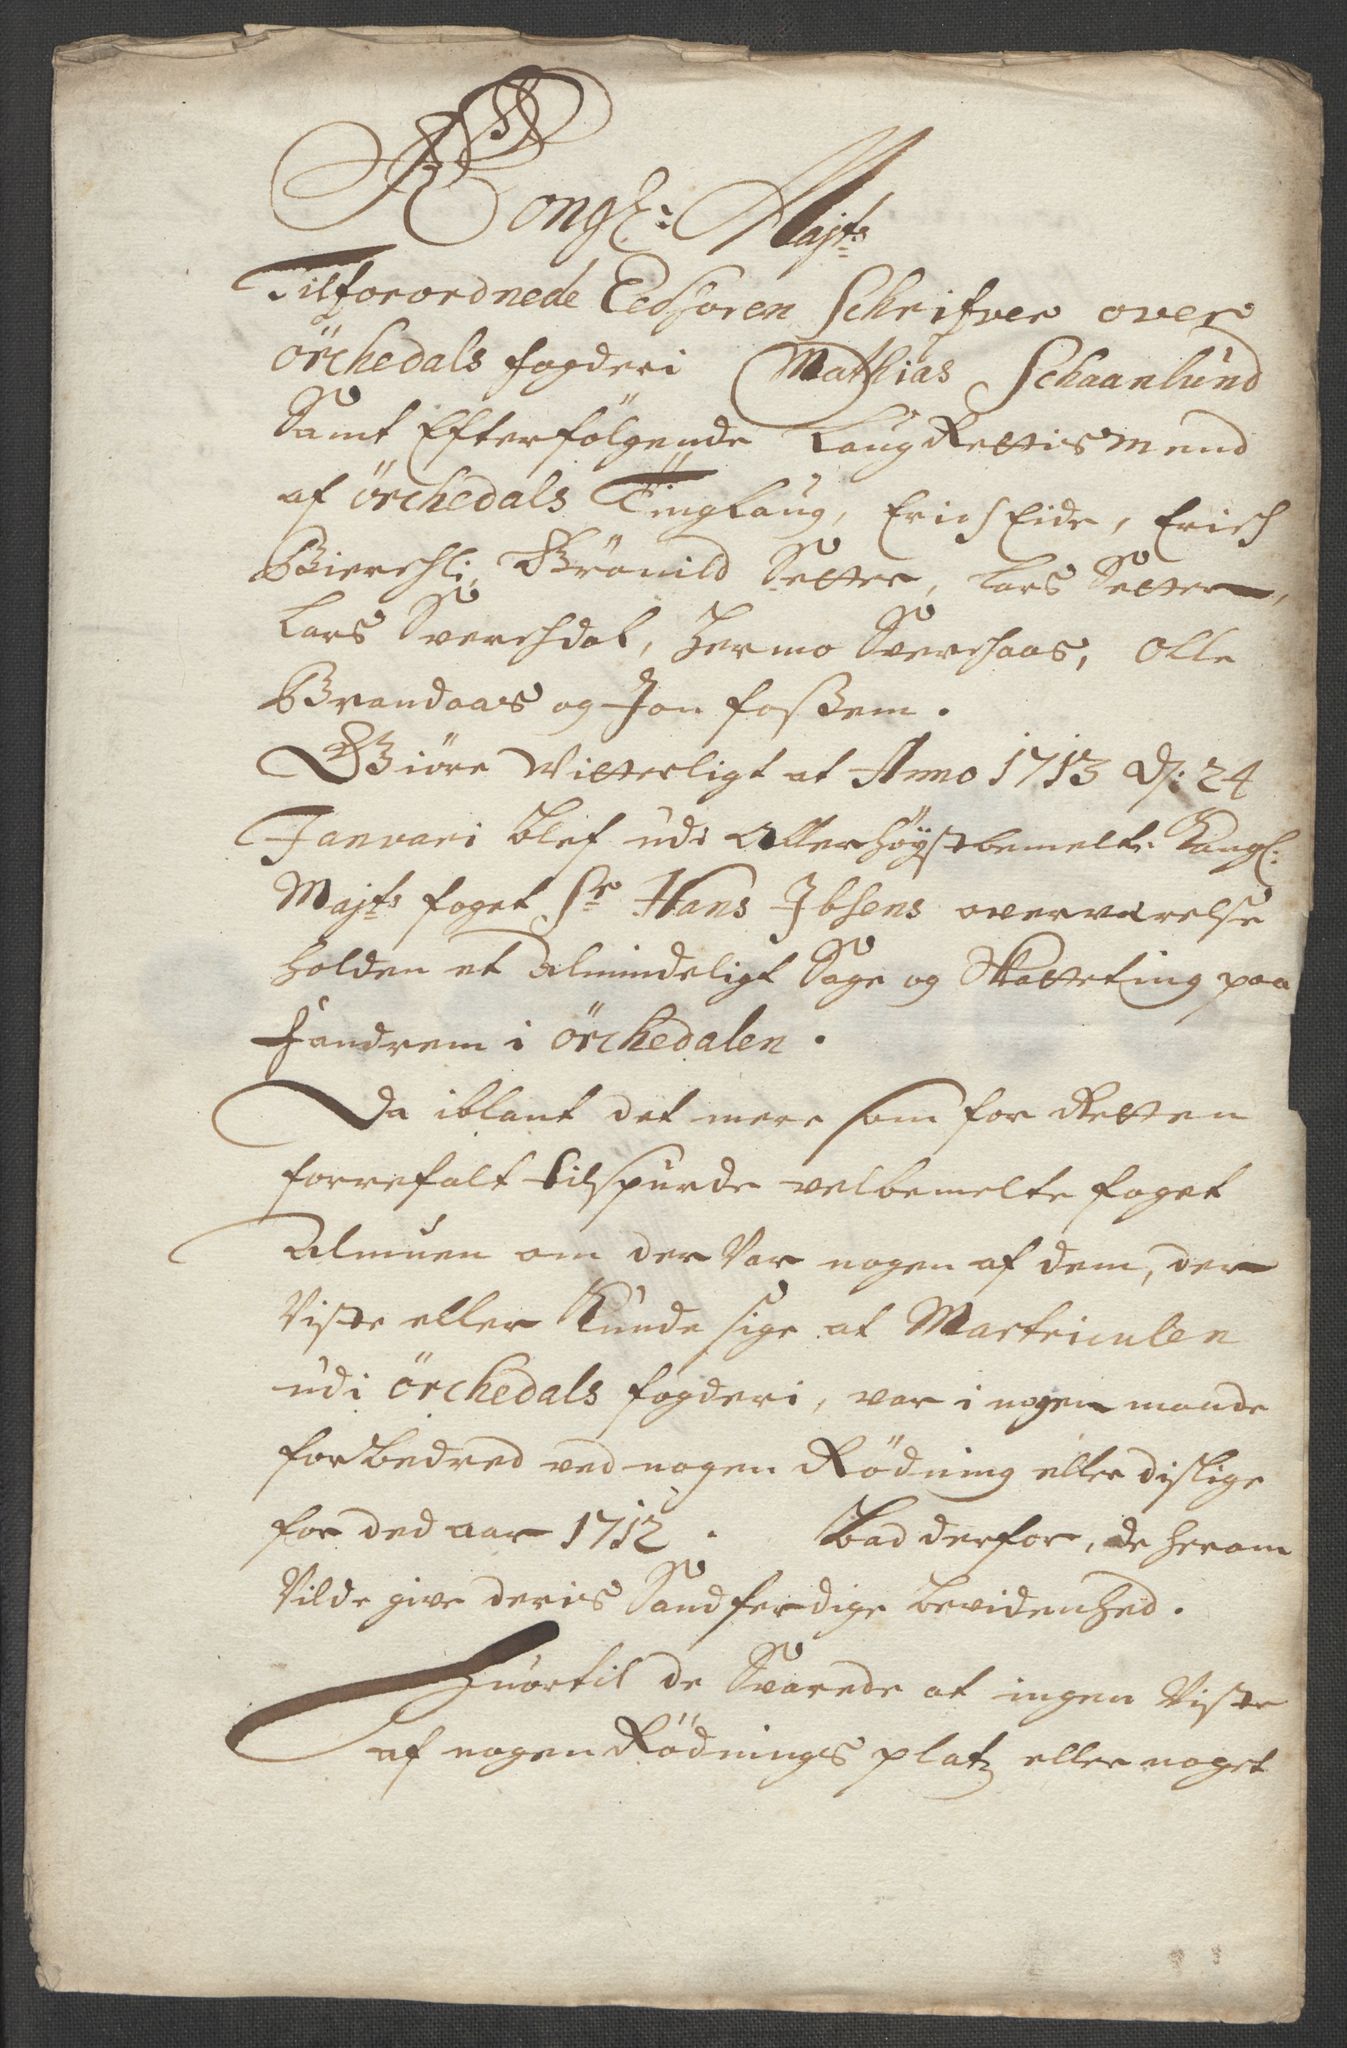 Kongl: Majts
Tilforordnede Eedsoren Schrifver over
Örchedals fogderi Mathias Schaanlund
Samt Efterfölgende LaugRettismend
af Örchedals Tinglaug, Erich Eide, Erich
Bierchli, Brönild Setter, Lars Setter,
Lars Sverchdal, Hermo Sverchaas, Olle
Brandaas og Jon Foßem.
Giöre Witterligt at Anno 1713 d: 24
Januari blef udi Allerhöystbemelte Kongl:
Majts foget Sr Hans Ibsens overværelse
holden et Almindeligt Sage og Skatteting paa
Fandrem i Örchedalen.
Da iblant det mere som for Retten
forrefalt tilspurde velbemelte foget
Almuen om der Var nogen af dem, der
Viste eller Kunde sige at Martriculen
udi Örchedals fogderi, var i nogen maade
forbedred ved nogen Rödning eller dislige
for ded aar 1712. Bad derfor, de herom
Vilde give deris Sandferdige bevidenhed.
Huortil de Svarede at ingen Viste
af nogen Rödnings platz eller noget